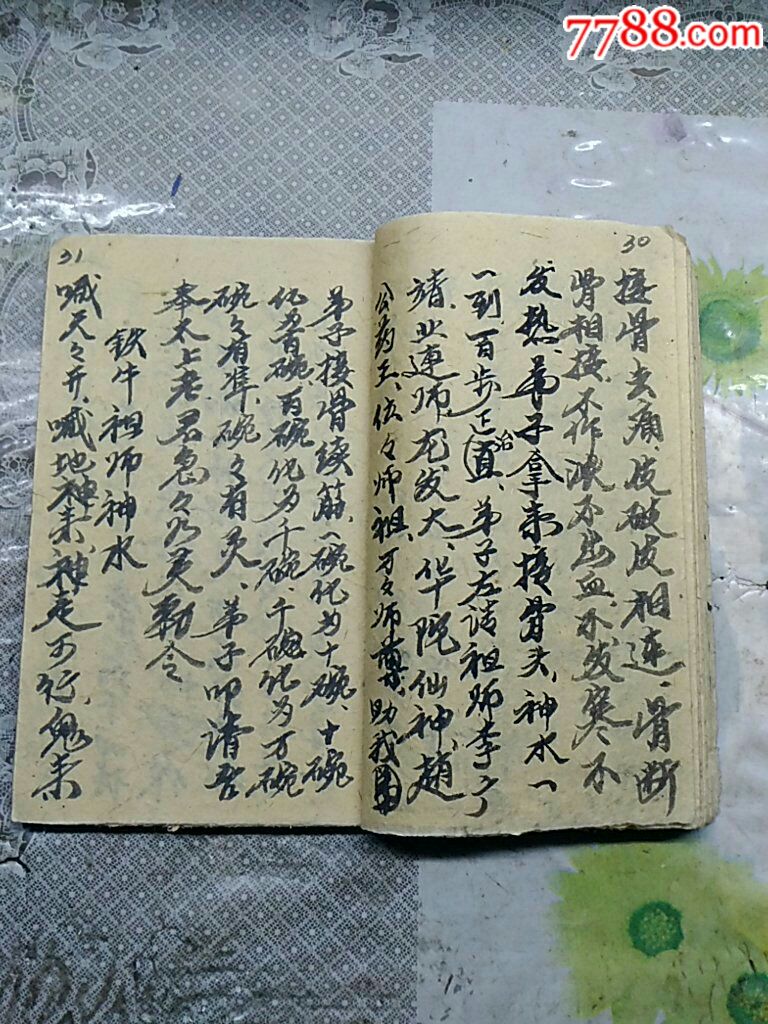 7788.com
30
接骨去痛、皮破皮相连、骨断
骨相接、不作浓不出血、不发寒不
发热、弟子拿来接骨头、神水一
一到一百步正直、弟子左请祖师李广
治
请北连师龙发大、华陀仙神、赵
公药王、伍々师祖、万々师尊、助我
31
弟子接骨续筋、一碗化为十碗、十碗
化为百碗、百碗化为千碗、千碗化为万碗
碗々有准、碗々有灵、弟子叩请吾
奉太上老君急々乃灵勅令
铁牛祖师神水
喊天々开、喊地神来、神走可行、鬼来